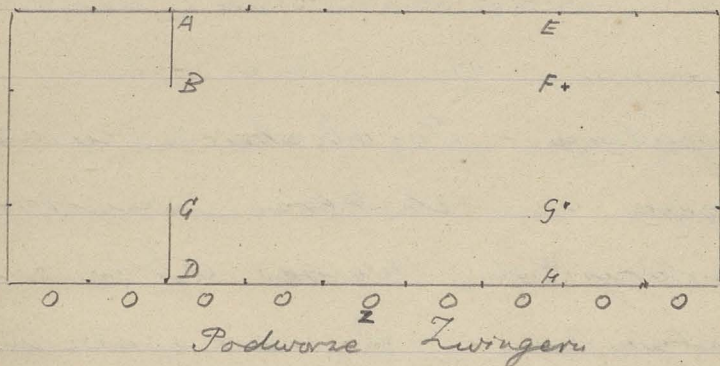 A E
B F
G G
D H
O O O O O O O O O
Z
Podworze Zwingeru